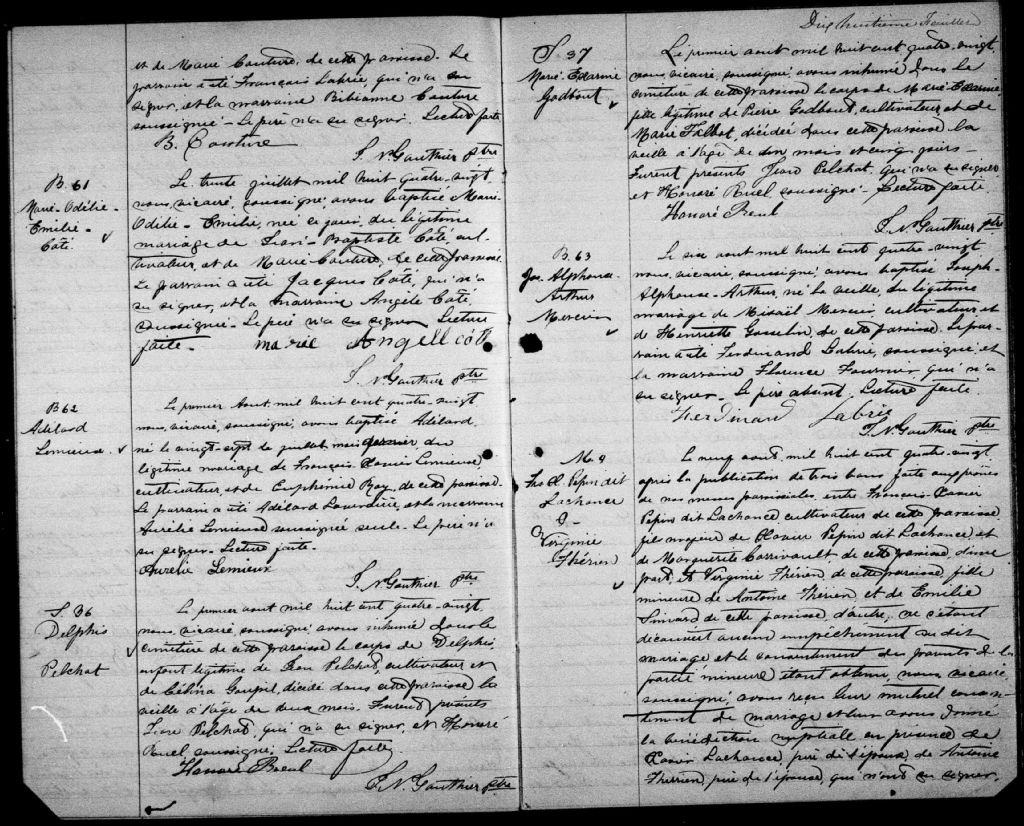 et de Marie Couture, de cette paroisse. Le
parrain a été François Labrie qui n'a su
signer, et la marraine Bibianne Couture
soussignée - Le père n'a su signer. Lecture faite
B. Couture
J. N. Gauthier ptre
B. 61
Marie-Odélie-
Emélie-
Côté
Le trente juillet mil huit cent quatre-vingt
nous, vicaire, soussigné, avons baptisé Marie-
Odélie-Emélie, née ce jour, du légitime
mariage de Jean-Baptiste Côté, cul-
tivateur, et de Marie Couture, de cette paroisse.
Le parrain a été Jacques Côté, qui n'a
su signer, et la marraine Angèle Côté,
soussignée - Le père n'a su signer Lecture
faite. marie Angell côté
J. N. Gauthier ptre
B 62
Adélard
Lemieux.
Le premier Aout, mil huit cent quatre-vingt
nous, vicaire, soussigné, avons baptisé Adélard,
né le vingt-sept de juillet mois dernier du
légitime mariage de François-Xavier Lemieux,
cultivateur, et de Euphémie Roy, de cette paroisse.
Le parrain a été Adélard, et la marraine
Aurélie Lemieux soussignée seule - Le père n'a
su signer - Lecture faite -
Aurélie Lemieux
J. N. Gauthier ptre
S 36
Delphis
Pelchat
Le premier aout mil huit cent quatre-vingt,
nous, vicaire, soussigné, avons inhumé dans le
cimetière de cette paroisse le corps de Delphis,
enfant légitime de Jean Pelchat, cultivateur et
de Célina Goupil, décédé dans cette paroisse la
veille à l'âge de deux mois. Furent présents
Jean Pelchat, qui n'a su signer, et Honoré
Ruel, soussigné. Lecture faite
Honoré Breul
J. N. Gauthier ptre
Dix huitième Feuillet
S. 37
Marie
Godbout
Le premier aout mil huit cent quatre-vingt
nous, vicaire, soussigné, avons inhumé dans le
cimetière de cette paroisse le corps de Marie
fille légitime de Pierre Godbout, cultivateur, et de
Marie Talbot, décédée dans cette paroisse la
veille à l'âge de dix mois et cinq jours -
Furent présents Jean Pelchat, qui n'a su signer
et Honoré Ruel soussigné - Lecture faite
Honoré Breul
J. N. Gauthier ptre
B. 63
Jos. Alphonse
Arthur
Mercier
Le six aout mil huit cent quatre-vingt
nous, vicaire, soussigné, avons baptisé Joseph-
Alphonse-Arthur, né la veille, du légitime
mariage de Misaël Mercier, cultivateur, et
de Henriette Gosselin de cette paroisse. Le par-
rain a été Ferdinand Labrie, soussigné, et
la marraine Florence Fournier qui n'a
su signer - Le père absent. Lecture faite
Ferdinand Labrie
J. N. Gauthier ptre
M. 8
Frs X. Pepin dit
Lachance
&
Virginie
Thérien
Le neuf aout, mil huit cent quatre-vingt,
après la publication de trois bans faite aux prônes
de nos messes paroissiales entre François-Xavier
Pepin dit Lachance, cultivateur de cette paroisse
fils majeur de Xavier Pepin dit Lachance, et
de Marguerite Corrivault, de cette paroisse, d'une
part, Et Virginie Thérien, de cette paroisse, fille
mineure de Antoine Therien et de Emélie
Simard de cette paroisse d'autre, ne s'étant
découvert aucun empêchement au dit
mariage et le consentement des parents de la
partie mineure étant obtenu, nous, vicaire,
soussigné, avons reçu leur mutuel consen-
tement de mariage et leur avons donné
la bénédiction nuptiale en présence de
Xavier Lachance, père de l'époux, de Antoine
Therrien, père de l'épouse, qui n'ont su signer,